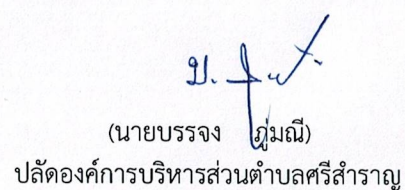 (นายบรรจง ภู่มณี)
ปลัดองค์การบริหารส่วนตำบลศรีสำราญ